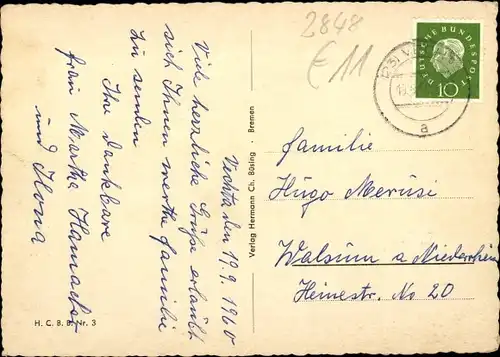 2848
€ 11
DEUTSCHE BUNDESPOST
10
a
Vechta den 19.9.1960
Viele herzliche Grüße erlaubt
sich Ihnen werthe Familie
zu senden
Ihre dankbare
Frau Martha Hamacher
und Ilona
Verlag Hermann Ch. Büsing · Bremen
Familie
Hugo Merüsi
Walsum a Niederrhein
Heinestr. No 20
H. C. B. B. Nr. 3